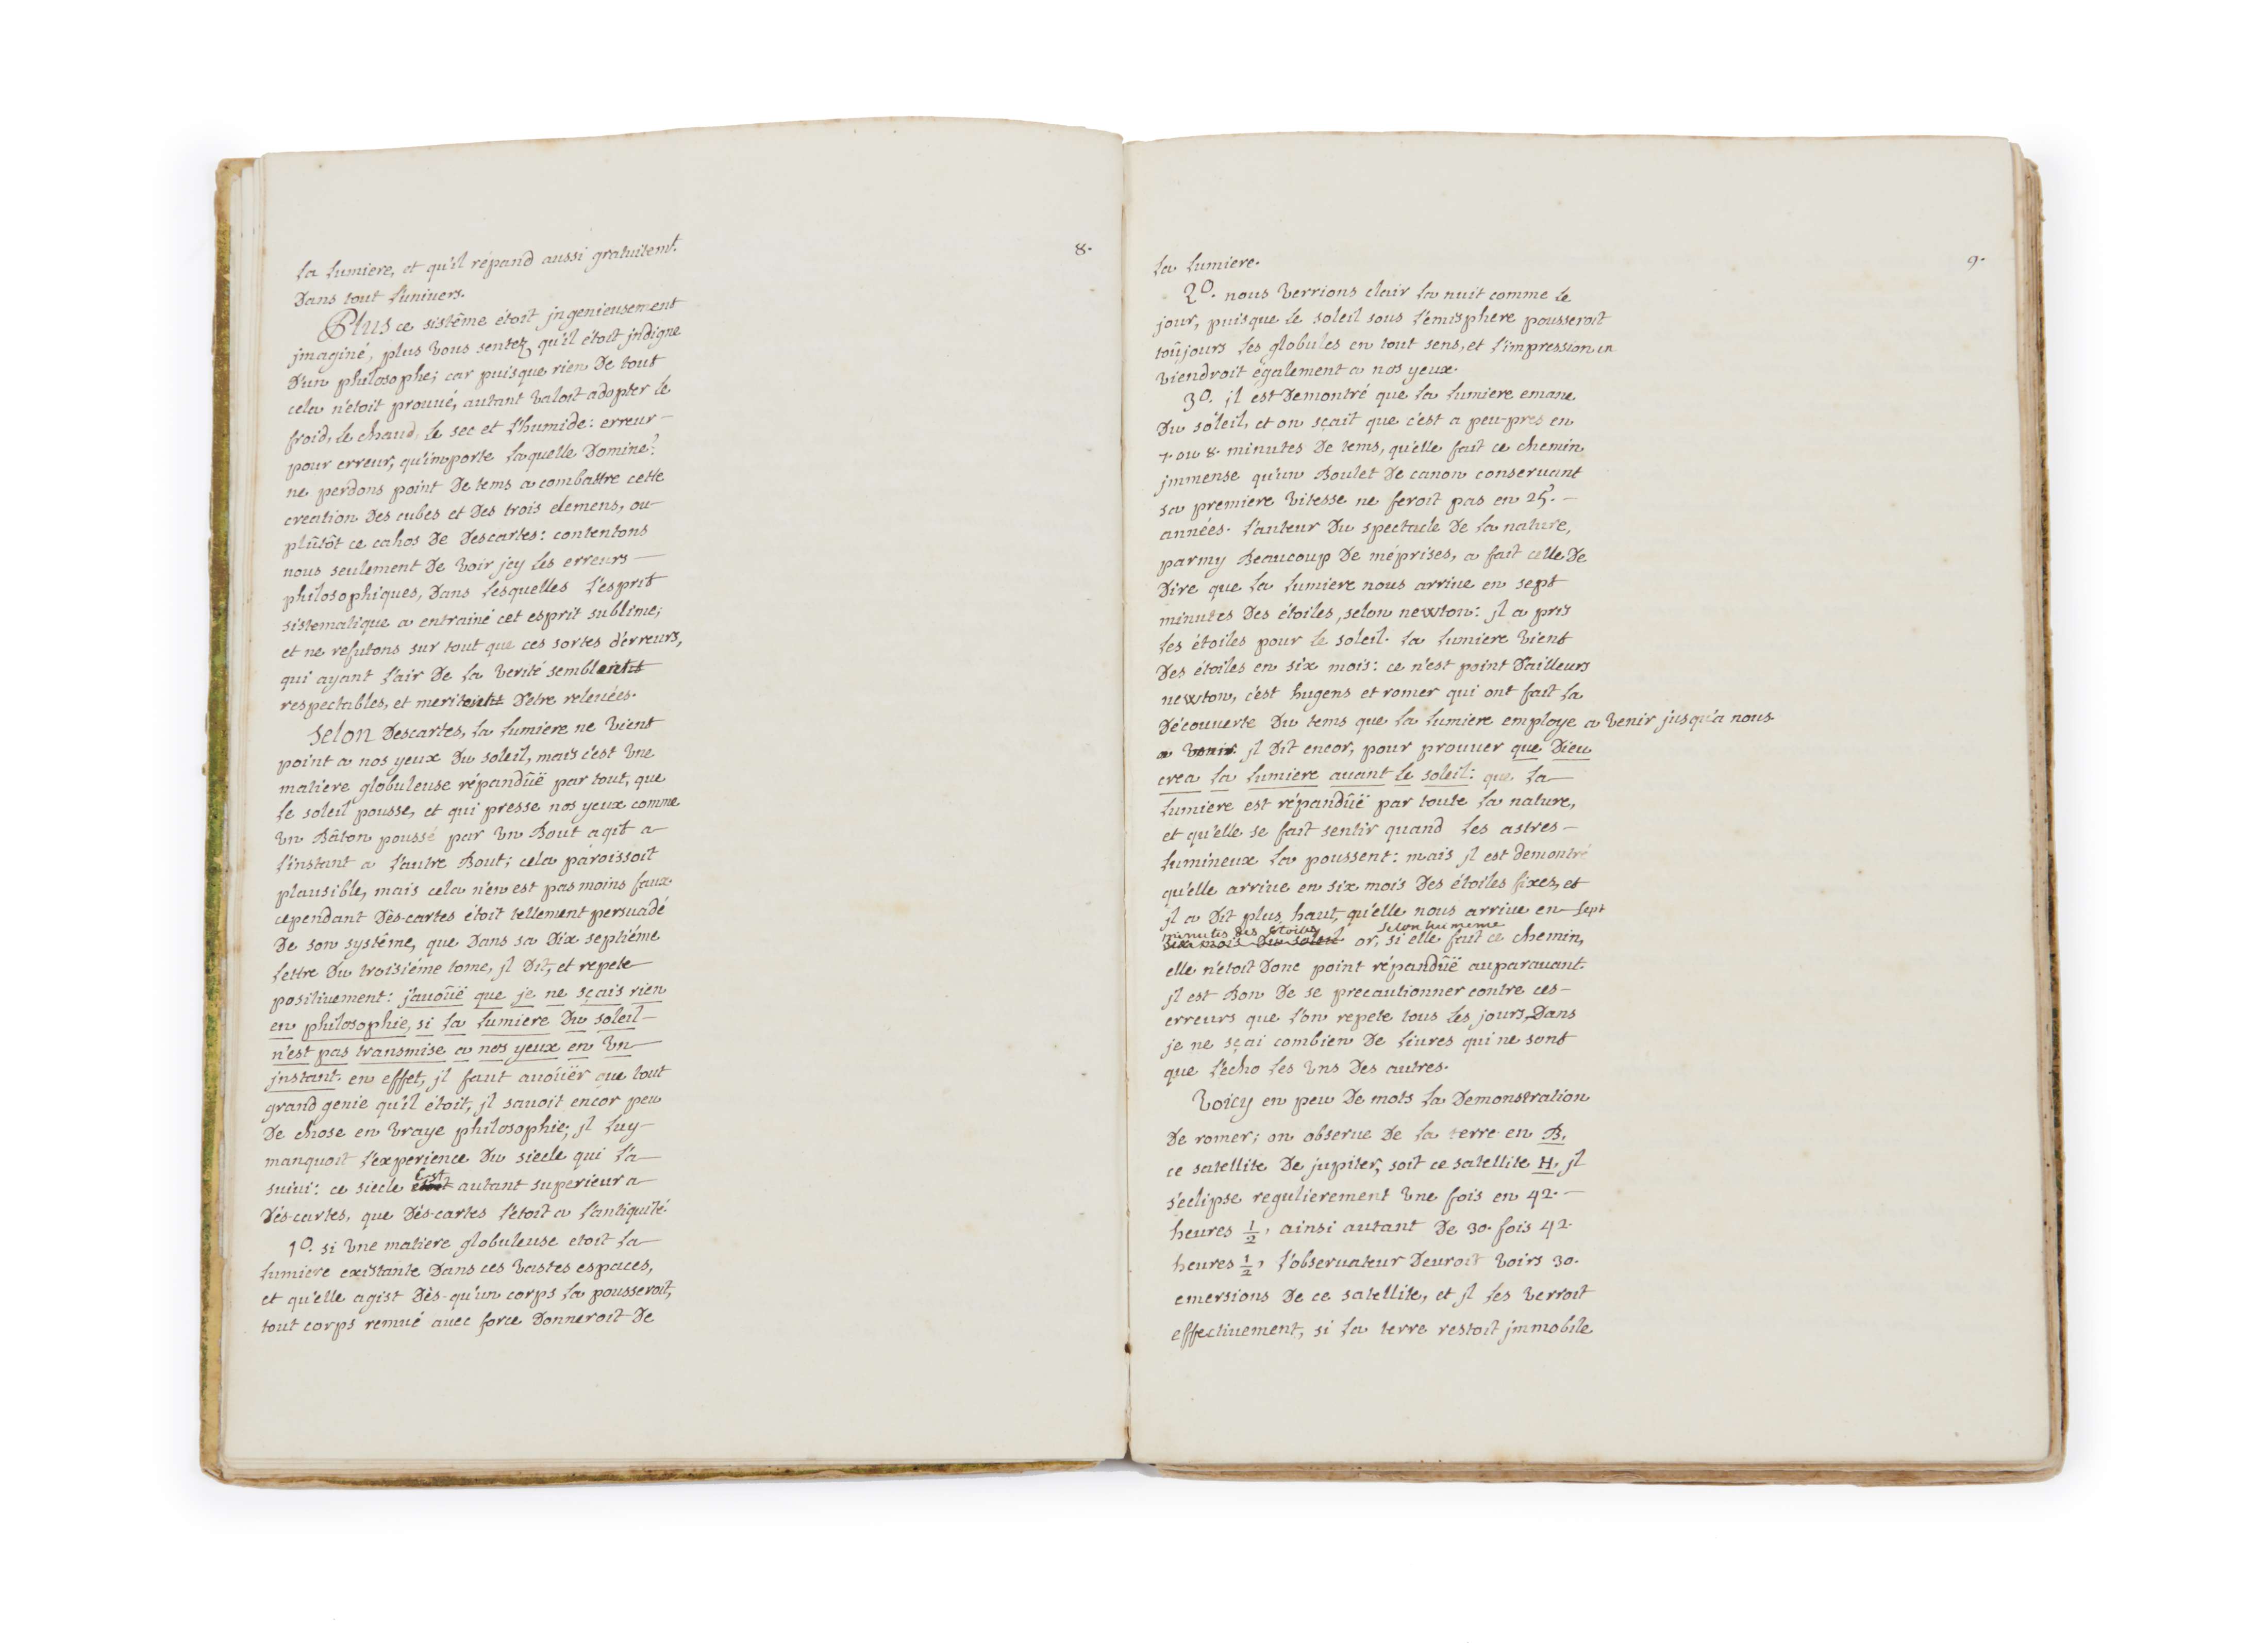 8.
la lumiere, et qu'il répand aussi gratuitemt.
Dans tout l'univers.
Plus ce sistême étoit jngenieusement
jmaginé, plus vous sentez qu'il étoit jndigne
d'un philosophe; car puisque rien De tout
cela n'étoit prouvé, autant valoit adopter le
froid, le chaud, le sec et l'humide: erreur
pour erreur, qu'importe laquelle Domine?
ne perdons point De tems a combattre cette
creation Des cubes et Des trois elemens, ou
plûtôt ce cahos De Descartes: contentons
nous seulement De voir jcy les erreurs
philosophiques, Dans lesquelles l'esprit
sistematique a entrainé cet esprit sublime;
et ne refutons sur tout que ces sortes d'érreurs,
qui ayant l'air De la verité semblent
respectables, et meritent D'etre relevées.
Selon Descartes, la lumiere ne vient
point a nos yeux Du soleil, mais c'est vne
matiere globuleuse répandûë par tout, que
le soleil pousse, et qui presse nos yeux comme
vn Bâton poussé par vn Bout agit a
l'instant a l'autre Bout; cela paroissoit
plausible, mais cela n'en est pas moins faux.
cependant Dès-cartes étoit tellement persuadé
De son systême, que Dans sa Dix septiéme
lettre Du troisiéme tome, jl Dit, et repete
positivement: j'avoûë que je ne sçais rien
en philosophie, si la lumiere Du soleil
n'est pas transmise a nos yeux en vn
jnstant. en effet, jl faut avoüër que tout
grand genie qu'il étoit, jl savoit encor peu
De chose en vraye philosophie; jl luy
manquoit l'experience Du siecle qui l'a
suivi: ce siecle est autant superieur a
Dés-cartes, que Dés-cartes l'étoit a l'antiquité.
1º. si vne matiere globuleuse etoit la
lumiere existante Dans ces vastes espaces,
et qu'elle agist Dès-qu'un corps la pousseroit,
tout corps remué avec force Donneroit De
9.
la lumiere.
2º. nous verrions clair la nuit comme le
jour, puisque le soleil sous l'émisphere pousseroit
toûjours les globules en tout sens, et l'impression en
viendroit également a nos yeux.
3º. jl est Demontré que la lumiere emane
Du soleil, et on sçait que c'est a peu-pres en
7. ou 8. minutes De tems, qu'elle fait ce chemin
jmmense qu'un Boulet De canon conservant
sa premiere vitesse ne feroit pas en 25.
années. l'auteur Du spectacle De la nature,
parmy Beaucoup De méprises, a fait celle De
Dire que la lumiere nous arrive en sept
minutes Des étoiles, selon newton: jl a pris
les étoiles pour le soleil. la lumiere vient
Des étoiles en six mois: ce n'est point D'ailleurs
newton, c'est hugens et romer qui ont fait la
Découverte Du tems que la lumiere employe a venir jusqu'a nous.
a venir. jl Dit encor, pour prouver que Dieu
crea la lumiere avant le soleil: que la
lumiere est répandûë par toute la nature,
et qu'elle se fait sentir quand les astres
lumineux la poussent: mais jl est demontré
qu'elle arrive en six mois Des étoiles fixes, et
jl a Dit plus haut, qu'elle nous arrive en sept
minutes des étoiles selon lui meme
six mois Du soleil or, si elle fait ce chemin,
elle n'étoit Donc point répandûë auparavant.
jl est Bon De se precautionner contre ces
erreurs que l'on repete tous les jours, Dans
je ne sçai combien De livres qui ne sont
que l'echo les vns Des autres.
Voicy en peu De mots la Demonstration
De romer; on observe De la terre en B,
ce satellite De jupiter, soit ce satellite H, jl
s'eclipse regulierement vne fois en 42.
heures 1/2, ainsi autant De 30. fois 42.
heures 1/2, l'observateur Devroit voirs 30.
emersions De ce satellite, et jl les verroit
effectivement, si la terre restoit jmmobile